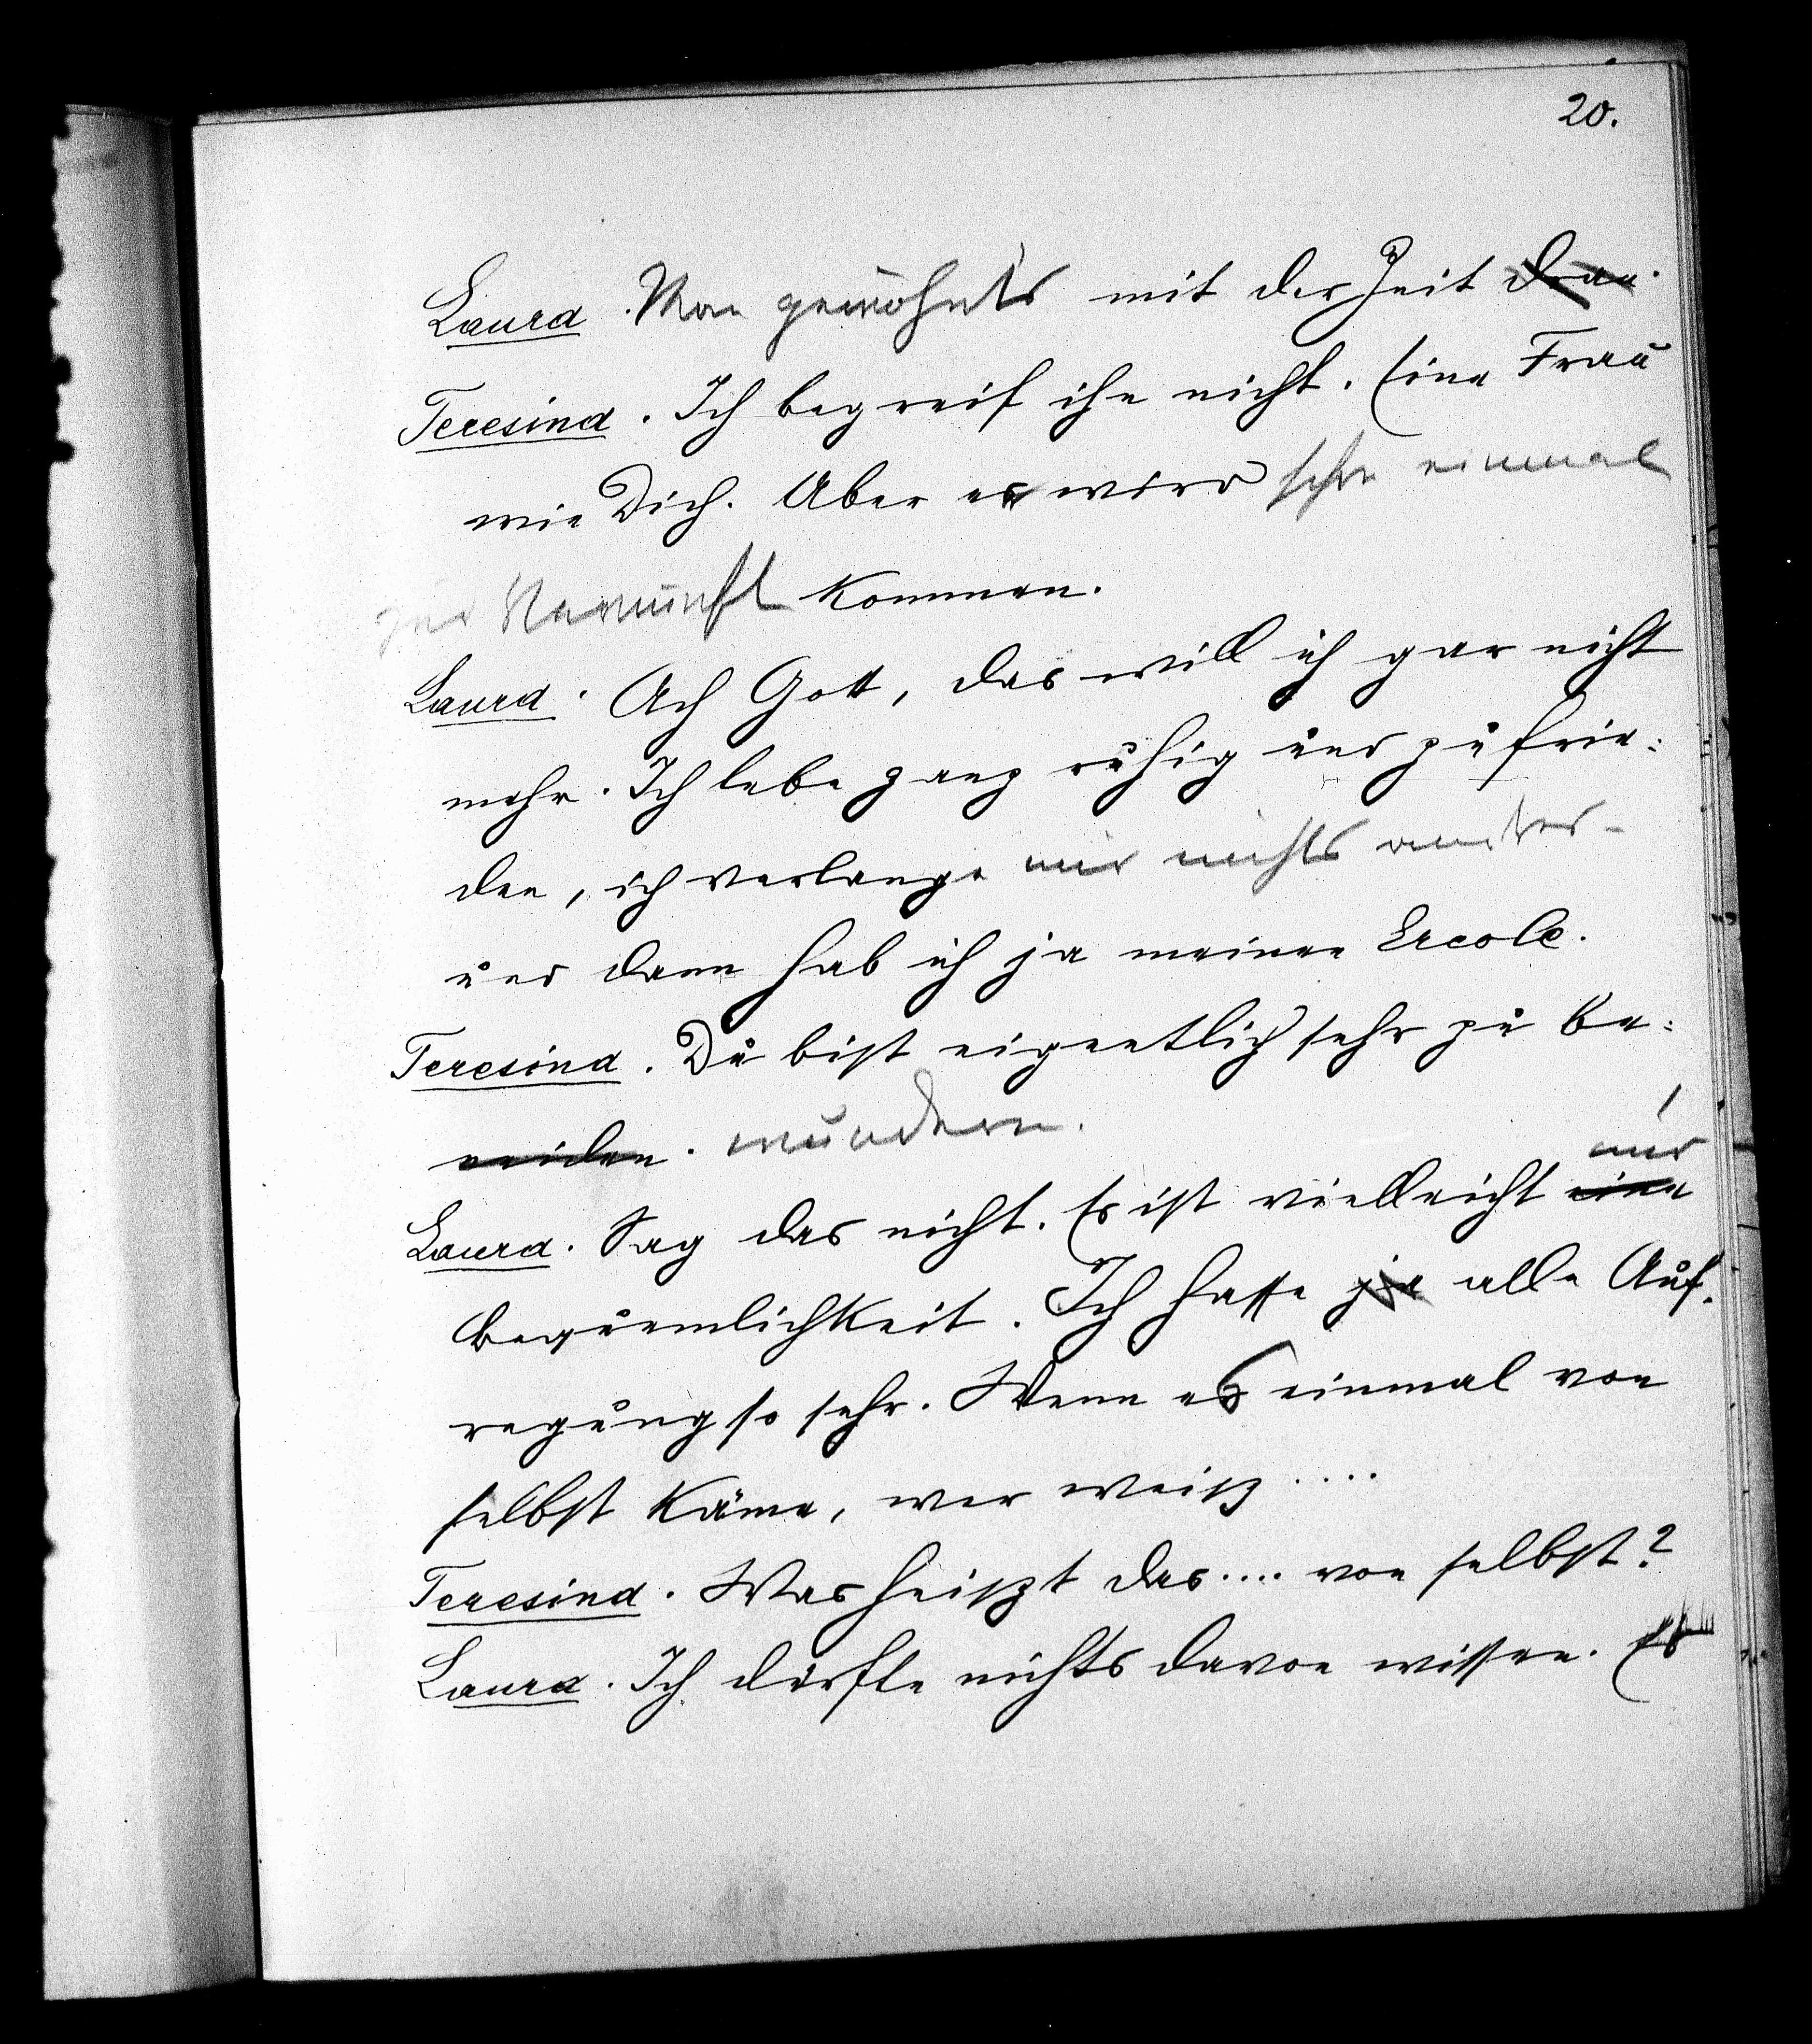 20.
Laura. Man gewöhnts mit der Zeit dran.
Teresina. Ich begreif ihn nicht. Eine Frau
wie Dich. Aber er wird schon einmal
zur Vernunft kommen.
Laura. Ach Gott, das will ich gar nicht
mehr. Ich lebe ganz ruhig und zufrie:
den, ich verlange mir nichts anders –
und dann hab ich ja meinen Ercole.
Teresina. Du bist eigentlich sehr zu be:
neiden. wundern.
nur
Laura. Sag das nicht. Es ist vielleicht eine
Bequemlichkeit. Ich hasse ja alle Auf.
regung so sehr. Wenn es einmal von
selbst käme, wer weiß ....
Teresina. Was heißt das .... von selbst?
Laura. Ich dürfte nichts davon wissen. Es